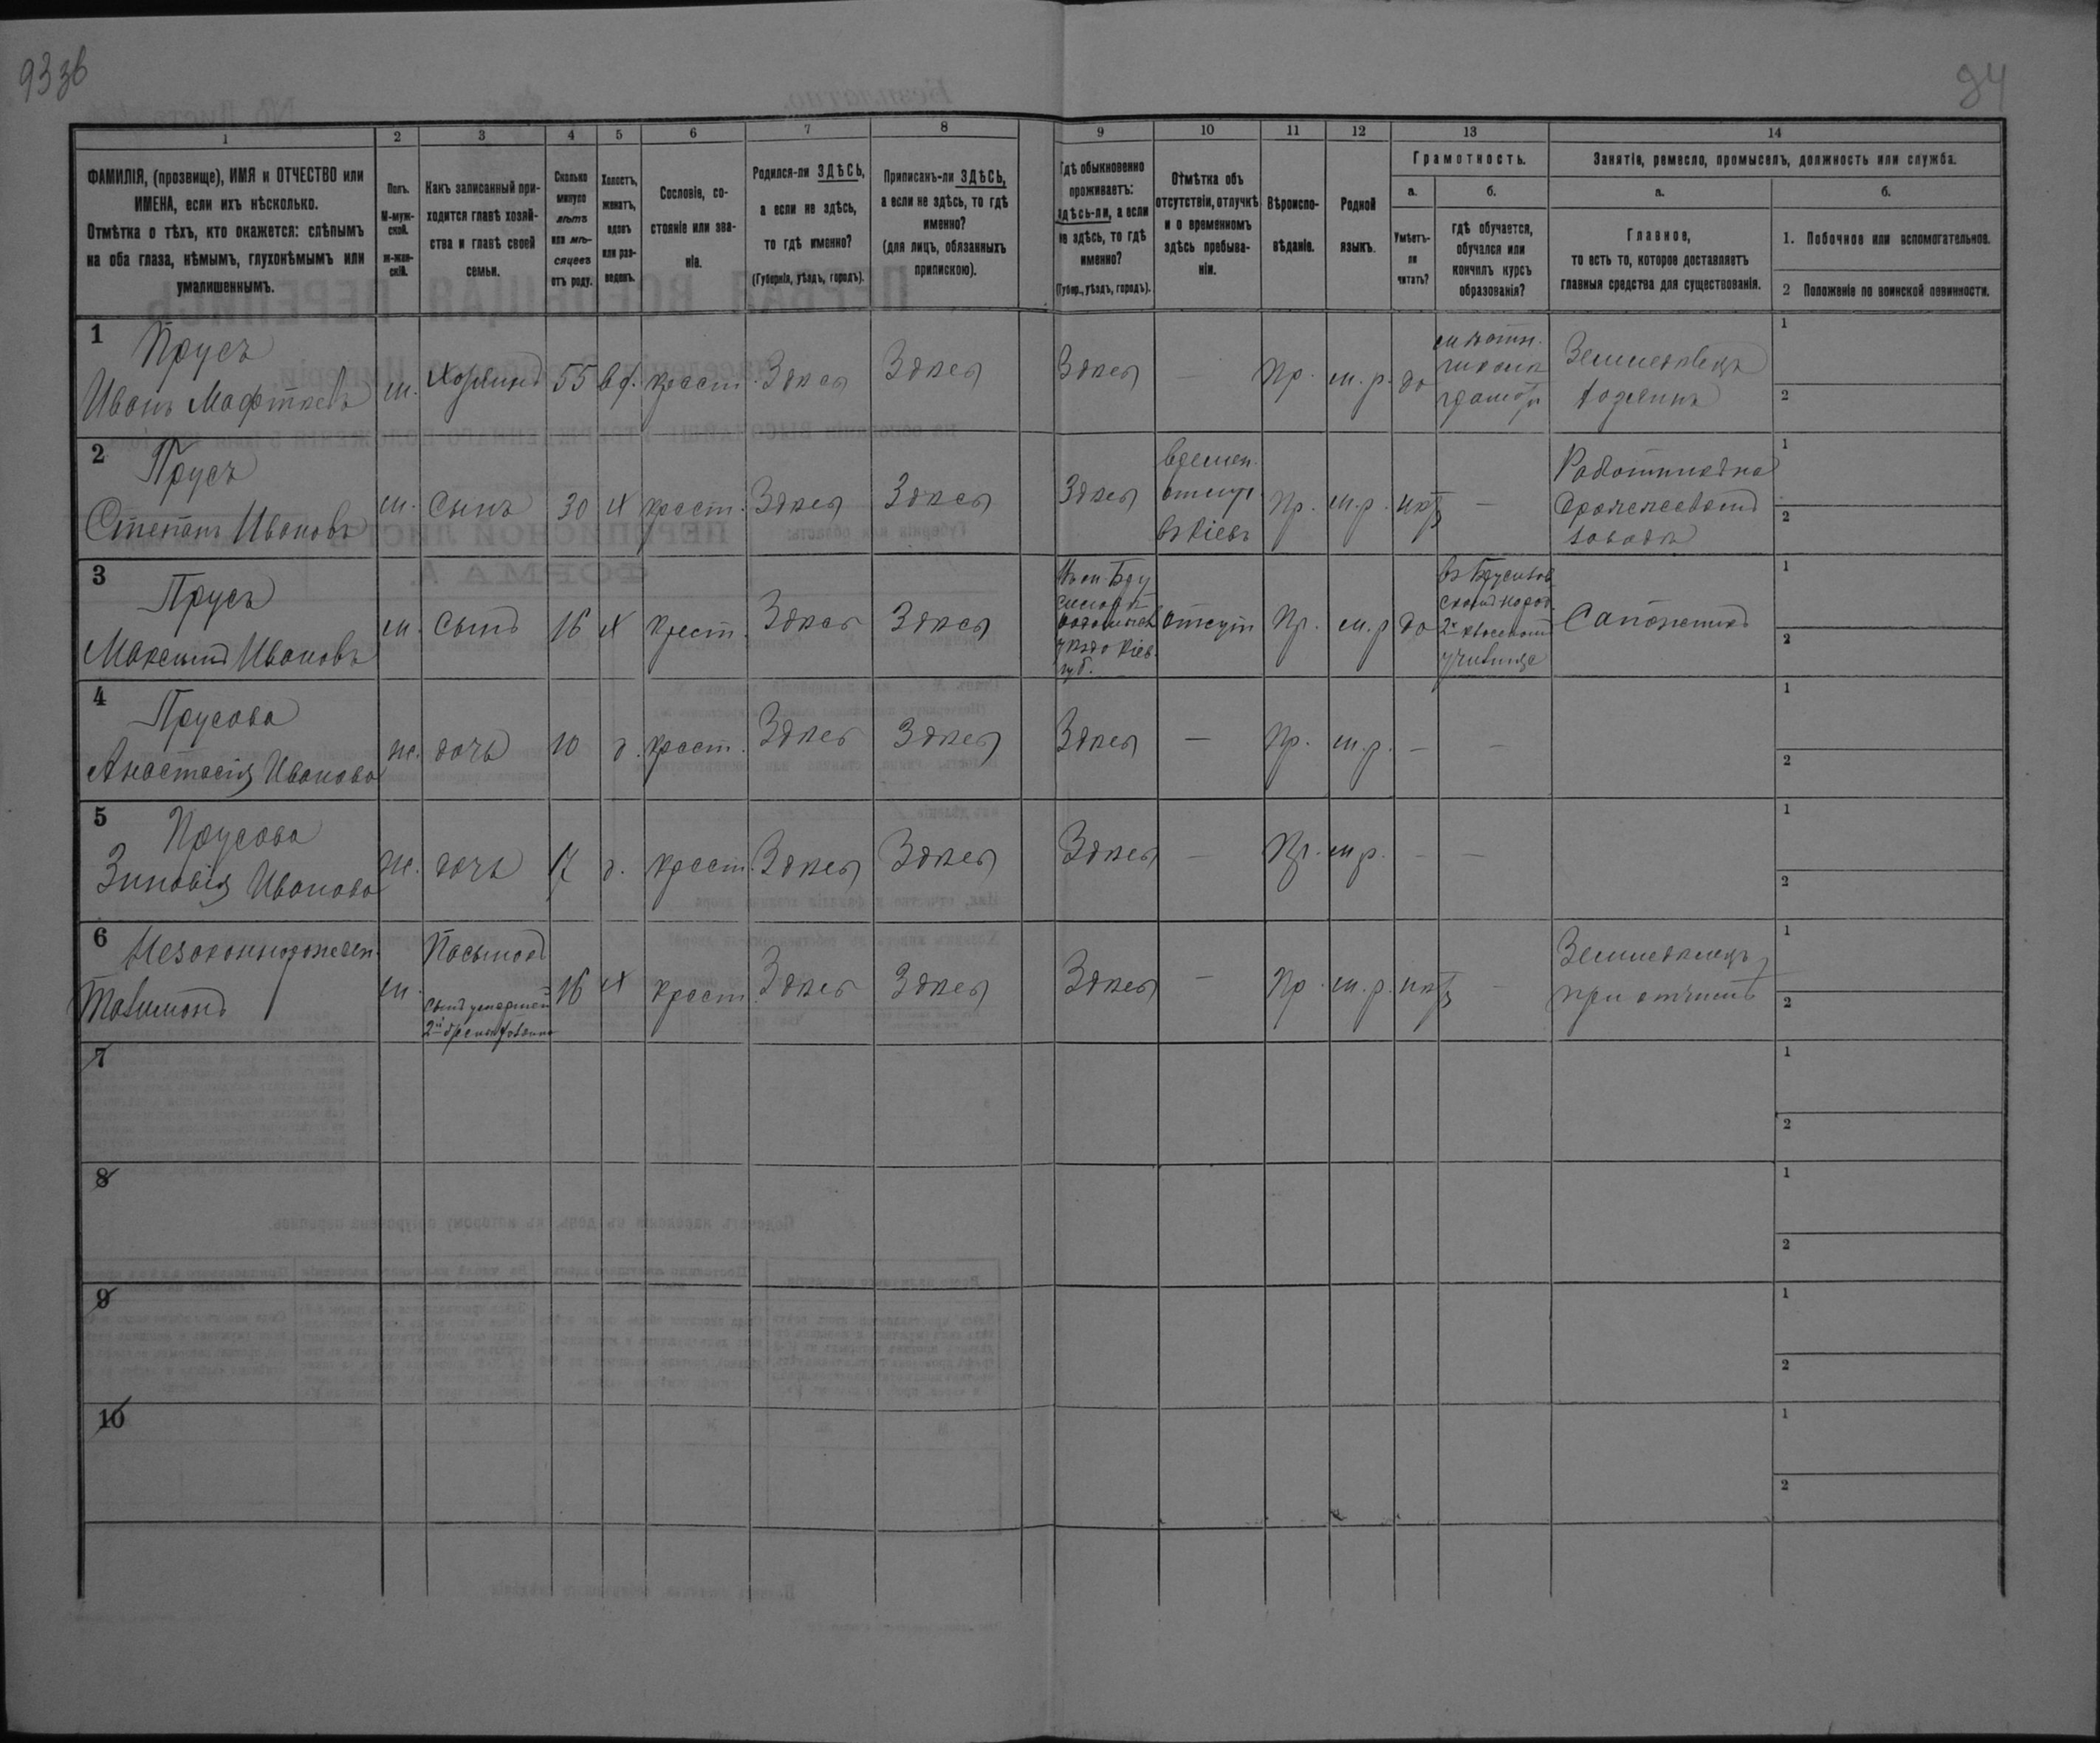 93 зв
94
1
2
3
4
5
6
7
8
9
10
11
12
13
14
ФАМИЛІЯ, (прозвище), ИМЯ и ОТЧЕСТВО или
ИМЕНА, если ихъ нѣсколько.
Отмѣтка о тѣхъ, кто окажется: слѣпымъ
на оба глаза, нѣмымъ, глухонѣмымъ или
умалишеннымъ.
Полъ.
М-муж-
ской.
ж-жен-
скій.
Какъ записанный при-
ходится главѣ хозяй-
ства и главѣ своей
семьи.
Сколько
минуло
лѣтъ
или мѣ-
сяцевъ
отъ роду.
Холостъ,
женатъ,
вдовъ
или раз-
веденъ.
Сословіе, со-
стояніе или зва-
ніе.
Родился-ли ЗДѢСЬ,
а если не здѣсь,
то гдѣ именно?
(Губернія, уѣздъ, городъ).
Приписанъ-ли ЗДѢСЬ,
а если не здѣсь, то гдѣ
именно?
(для лицъ, обязанныхъ
припискою).
Гдѣ обыкновенно
проживаетъ:
здѣсь-ли, а если
не здѣсь, то гдѣ
именно?
(Губер., уѣздъ, городъ).
Отмѣтка объ
отсутствіи, отлучкѣ
и о временномъ
здѣсь пребыва-
ніи.
Вѣроиспо-
вѣданіе.
Родной
языкъ.
Грамотность.
а.
Умѣетъ-
ли
читать?
б.
гдѣ обучается,
обучался или
кончилъ курсъ
образованія?
Занятіе, ремесло, промыселъ, должность или служба.
а.
Главное,
то есть то, которое доставляетъ
главныя средства для существованія.
б.
1. Побочное или вспомогательное.
2 Положеніе по воинской повинности.
1
Прусъ
Иванъ
м. Хозяинъ 55 вд. крест. Здѣсь Здѣсь Здѣсь — Пр. м.р. да
Земледѣлецъ
хозяинъ
1
2
2
Прусъ
Степанъ Ивановъ
м. Сынъ 30 х крест. Здѣсь Здѣсь Здѣсь
времен.
отсут
въ Кіевѣ
Пр. м.р. нѣтъ —
завода
1
2
3
Прусъ
Максимъ Ивановъ
м. сынъ 16 х крест. Здѣсь Здѣсь
Кіев.
губ.
отсут Пр. м.р да
училище
Сапожникъ
1
2
4
Прусова
Анастасія Иванова
ж. дочь 10 д. крест. Здѣсь Здѣсь Здѣсь — Пр. м.р. — —
1
2
5
Прусова
Зиновія Иванова
ж. дочь 17 д. крест. Здѣсь Здѣсь Здѣсь — Пр. м.р. — —
1
2
6
Незаконнорожден.
м.
Пасынокъ
сынъ умершей
16 х крест. Здѣсь Здѣсь Здѣсь — Пр. м.р. нѣтъ —
Земледѣлецъ
при отчимѣ
1
2
7
1
2
8
1
2
9
1
2
10
1
2